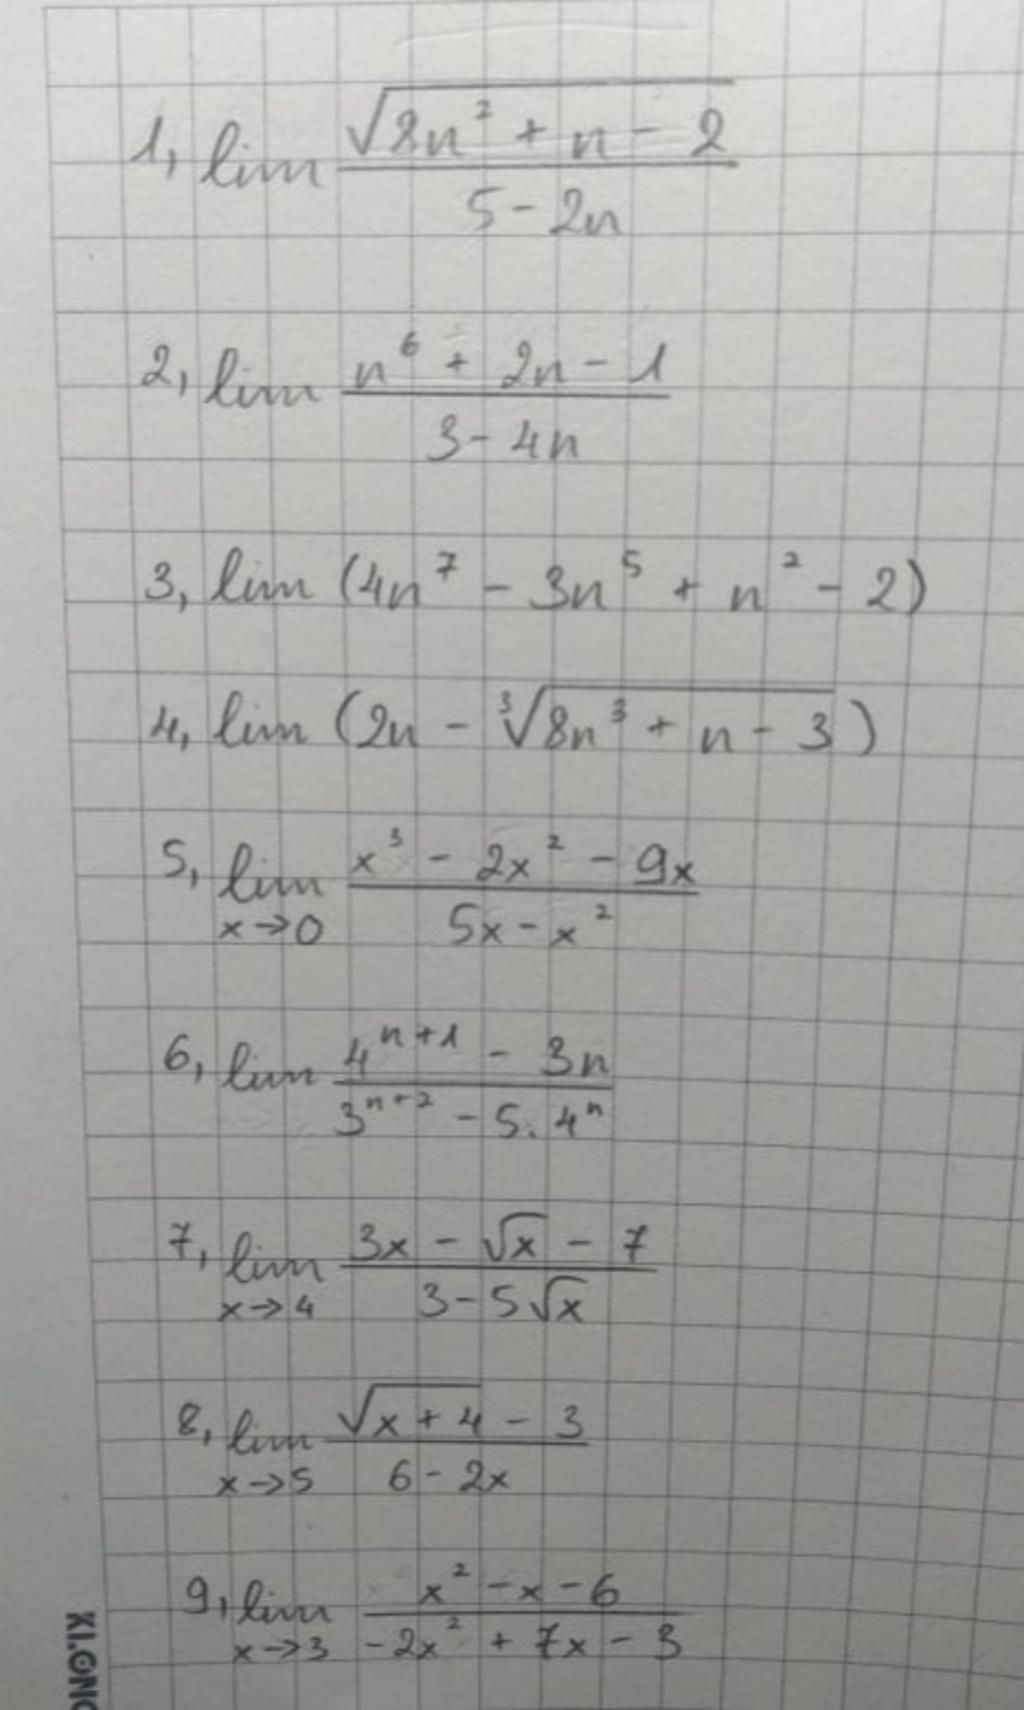 1, lim \frac{\sqrt{2n^2 + n - 2}}{5 - 2n}
2, lim \frac{n^6 + 2n - 1}{3 - 4n}
3, lim (4n^7 - 3n^5 + n^2 - 2)
4, lim (2n - \sqrt[3]{8n^3 + n - 3})
5, lim_{x→0} \frac{x^3 - 2x^2 - 9x}{5x - x^2}
6, lim \frac{4^{n+1} - 3n}{3^{n+2} - 5.4^n}
7, lim_{x→4} \frac{3x - \sqrt{x} - 7}{3 - 5\sqrt{x}}
8, lim_{x→5} \frac{\sqrt{x+4} - 3}{6 - 2x}
9, lim_{x→3} \frac{x^2 - x - 6}{-2x^2 + 7x - 3}